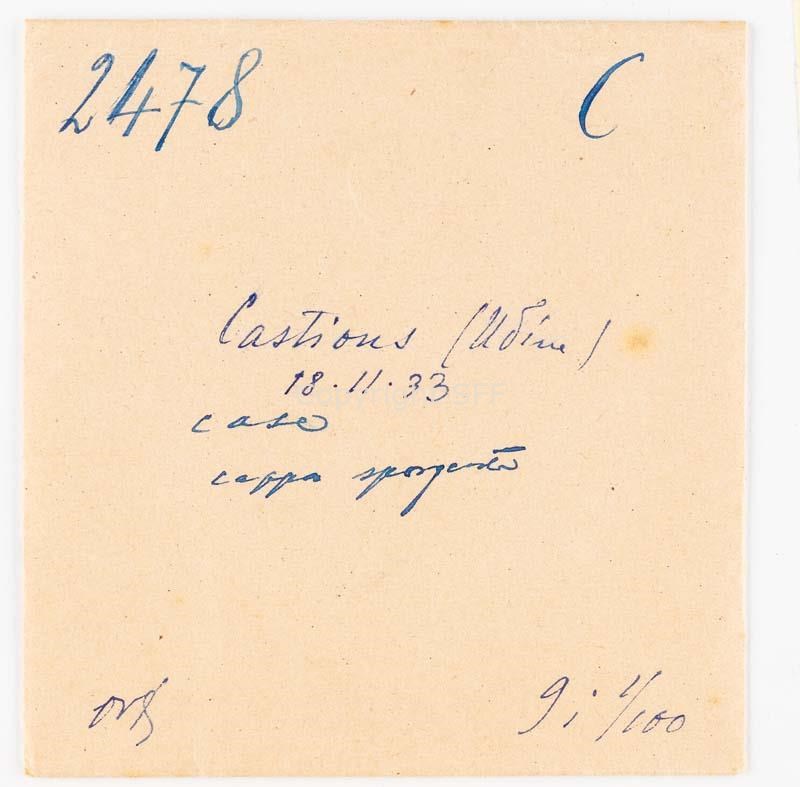 2478 C
Castions (Udine)
18.11.33
case
cappa sporgente
9; 1/100